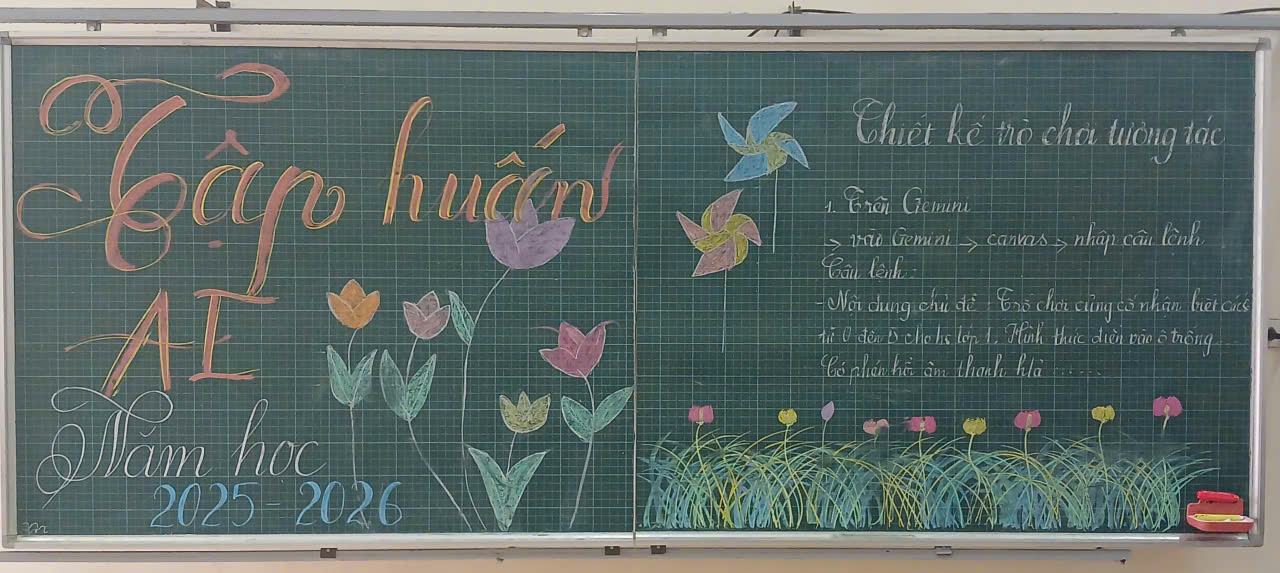 Tập huấn
AI
Năm học
2025 - 2026
Thiết kế trò chơi tương tác
1. Trên Gemini
→ vào Gemini → canvas → nhập câu lệnh
Câu lệnh:
- Nội dung chủ đề: Trò chơi củng cố nhận biết các số
từ 0 đến 5 cho hs lớp 1. Hình thức điền vào ô trống
Có phản hồi âm thanh khi ......